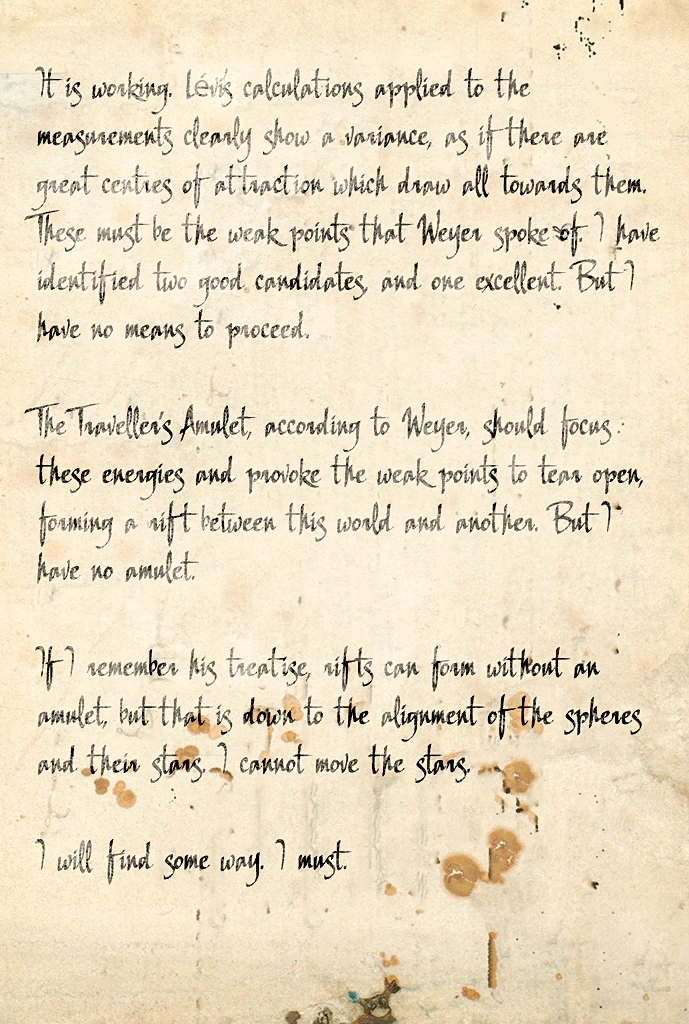 It is working. Lévi's calculations applied to the
measurements clearly show a variance, as if there are
great centres of attraction which draw all towards them.
These must be the weak points that Weyer spoke of. I have
identified two good candidates, and one excellent. But I
have no means to proceed.
The Traveller's Amulet, according to Weyer, should focus
these energies and provoke the weak points to tear open,
forming a rift between this world and another. But I
have no amulet.
If I remember his treatise, rifts can form without an
amulet, but that is down to the alignment of the spheres
and their stars. I cannot move the stars.
I will find some way. I must.